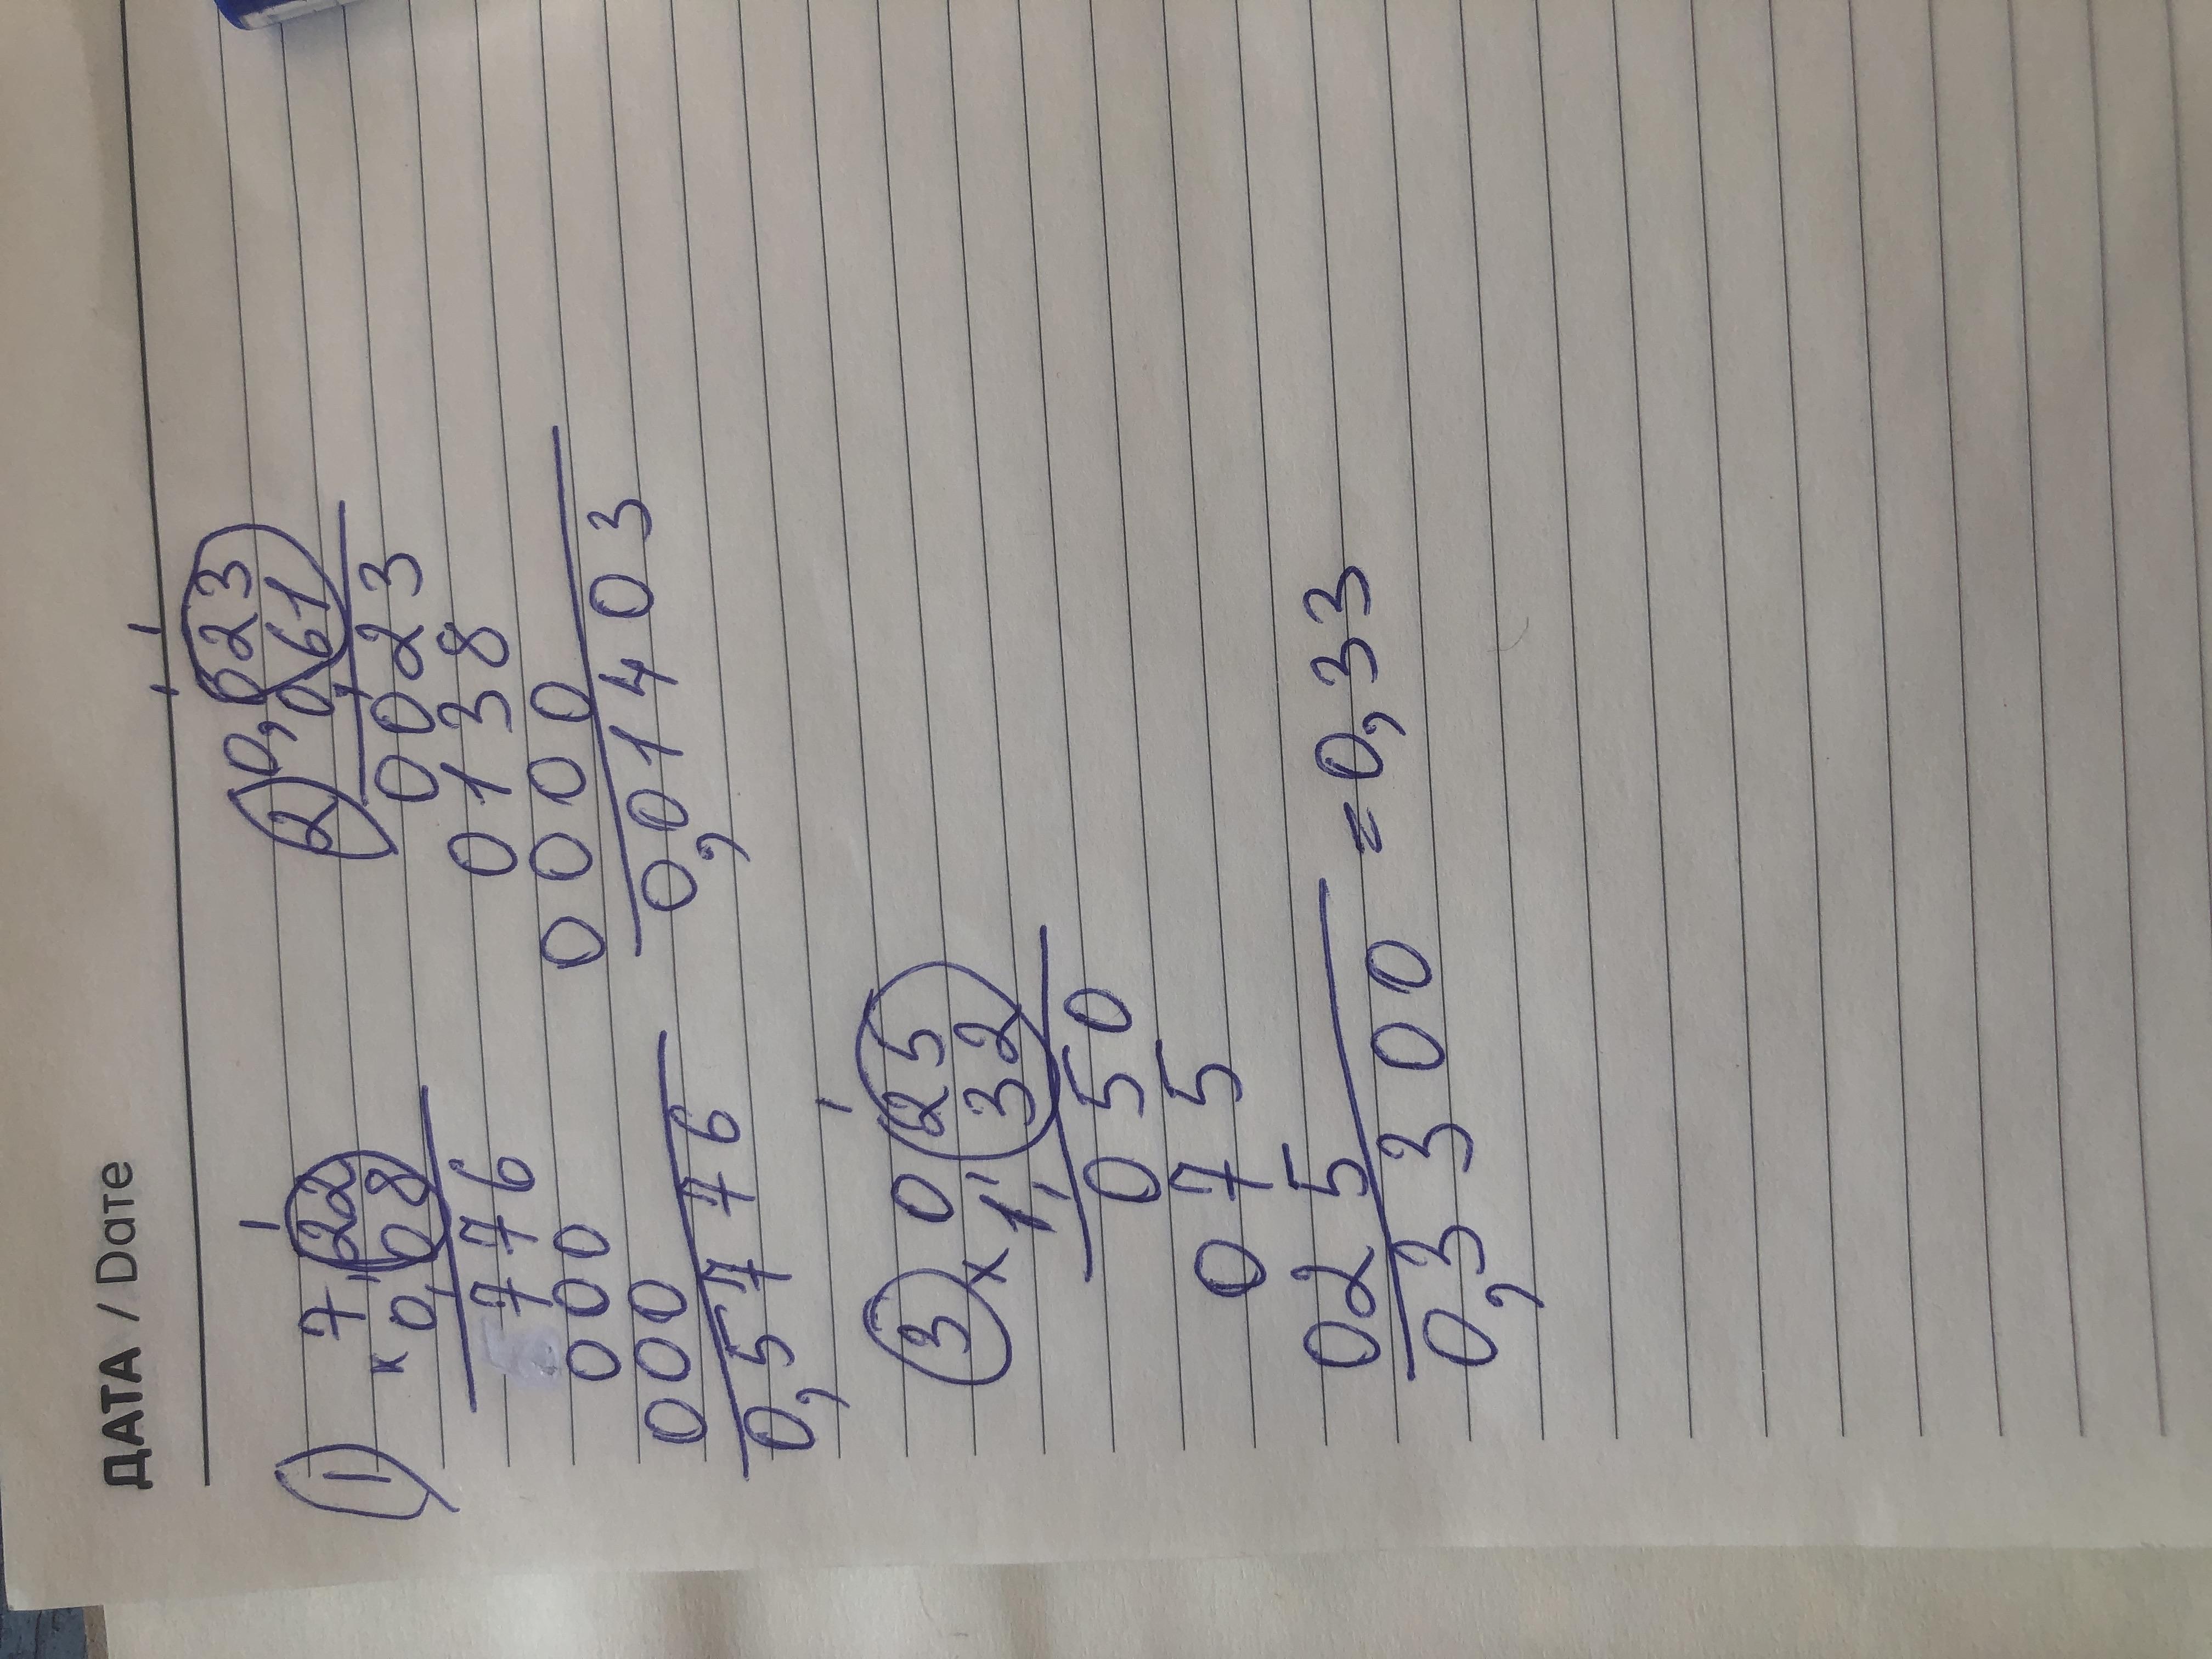 ДАТА / Dате
1 7,22
x 0,08
5776
000
000
0,5776
2 0,023
0,61
0023
0138
0000
0,01403
3 0,25
x 1,32
050
075
025
0,3300 = 0,33